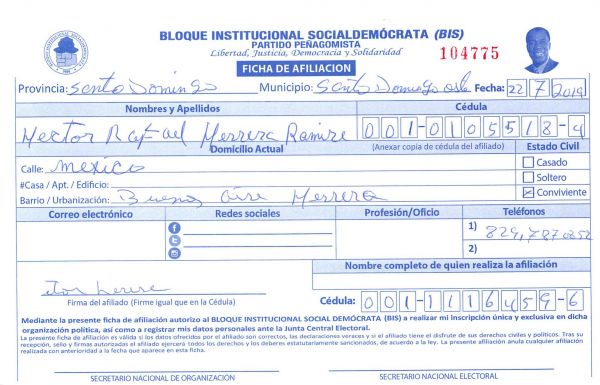 BLOQUE INSTITUCIONAL SOCIALDEMÓCRATA (BIS)
PARTIDO PEÑAGOMISTA
Libertad, Justicia, Democracia y Solidaridad
104775
FICHA DE AFILIACION
Provincia: Santo Domingo Municipio: Santo Domingo Fecha: 22/7/2019
Nombres y Apellidos Cédula
Hector Rafael Herrera Ramire 001-0105518-4
Domicilio Actual (Anexar copia de cédula del afiliado) Estado Civil
Calle: Mexico Casado
#Casa / Apt. / Edificio: Soltero
Barrio / Urbanización: Buenos Aire Herrera Conviviente
Correo electrónico Redes sociales Profesión/Oficio Teléfonos
1) 829,787 0252
2)
Nombre completo de quien realiza la afiliación
Firma del afiliado (Firme igual que en la Cédula) Cédula: 001-1116459-6
Mediante la presente ficha de afiliación autorizo al BLOQUE INSTITUCIONAL SOCIAL DEMÓCRATA (BIS) a realizar mi inscripción única y exclusiva en dicha
organización política, así como a registrar mis datos personales ante la Junta Central Electoral.
La presente ficha de afiliación es válida si los datos ofrecidos por el afiliado son correctos, las declaraciones veraces y si el titular tiene el disfrute de sus derechos civiles y políticos. Tras su
recepción, sello y firmas autorizadas el afiliado ejercerá todos los derechos y los deberes estatutariamente sancionados, de acuerdo a la ley. La presente afiliación anula cualquier afiliación
realizada con anterioridad a la fecha que aparece en esta ficha.
SECRETARIO NACIONAL DE ORGANIZACIÓN SECRETARIO NACIONAL ELECTORAL